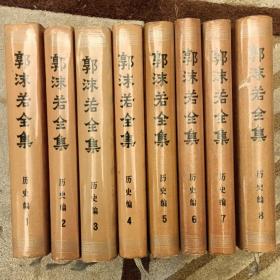 郭沫若全集
历史编
1
郭沫若全集
历史编
2
郭沫若全集
历史编
3
郭沫若全集
历史编
4
郭沫若全集
历史编
5
郭沫若全集
历史编
6
郭沫若全集
历史编
7
郭沫若全集
历史编
8